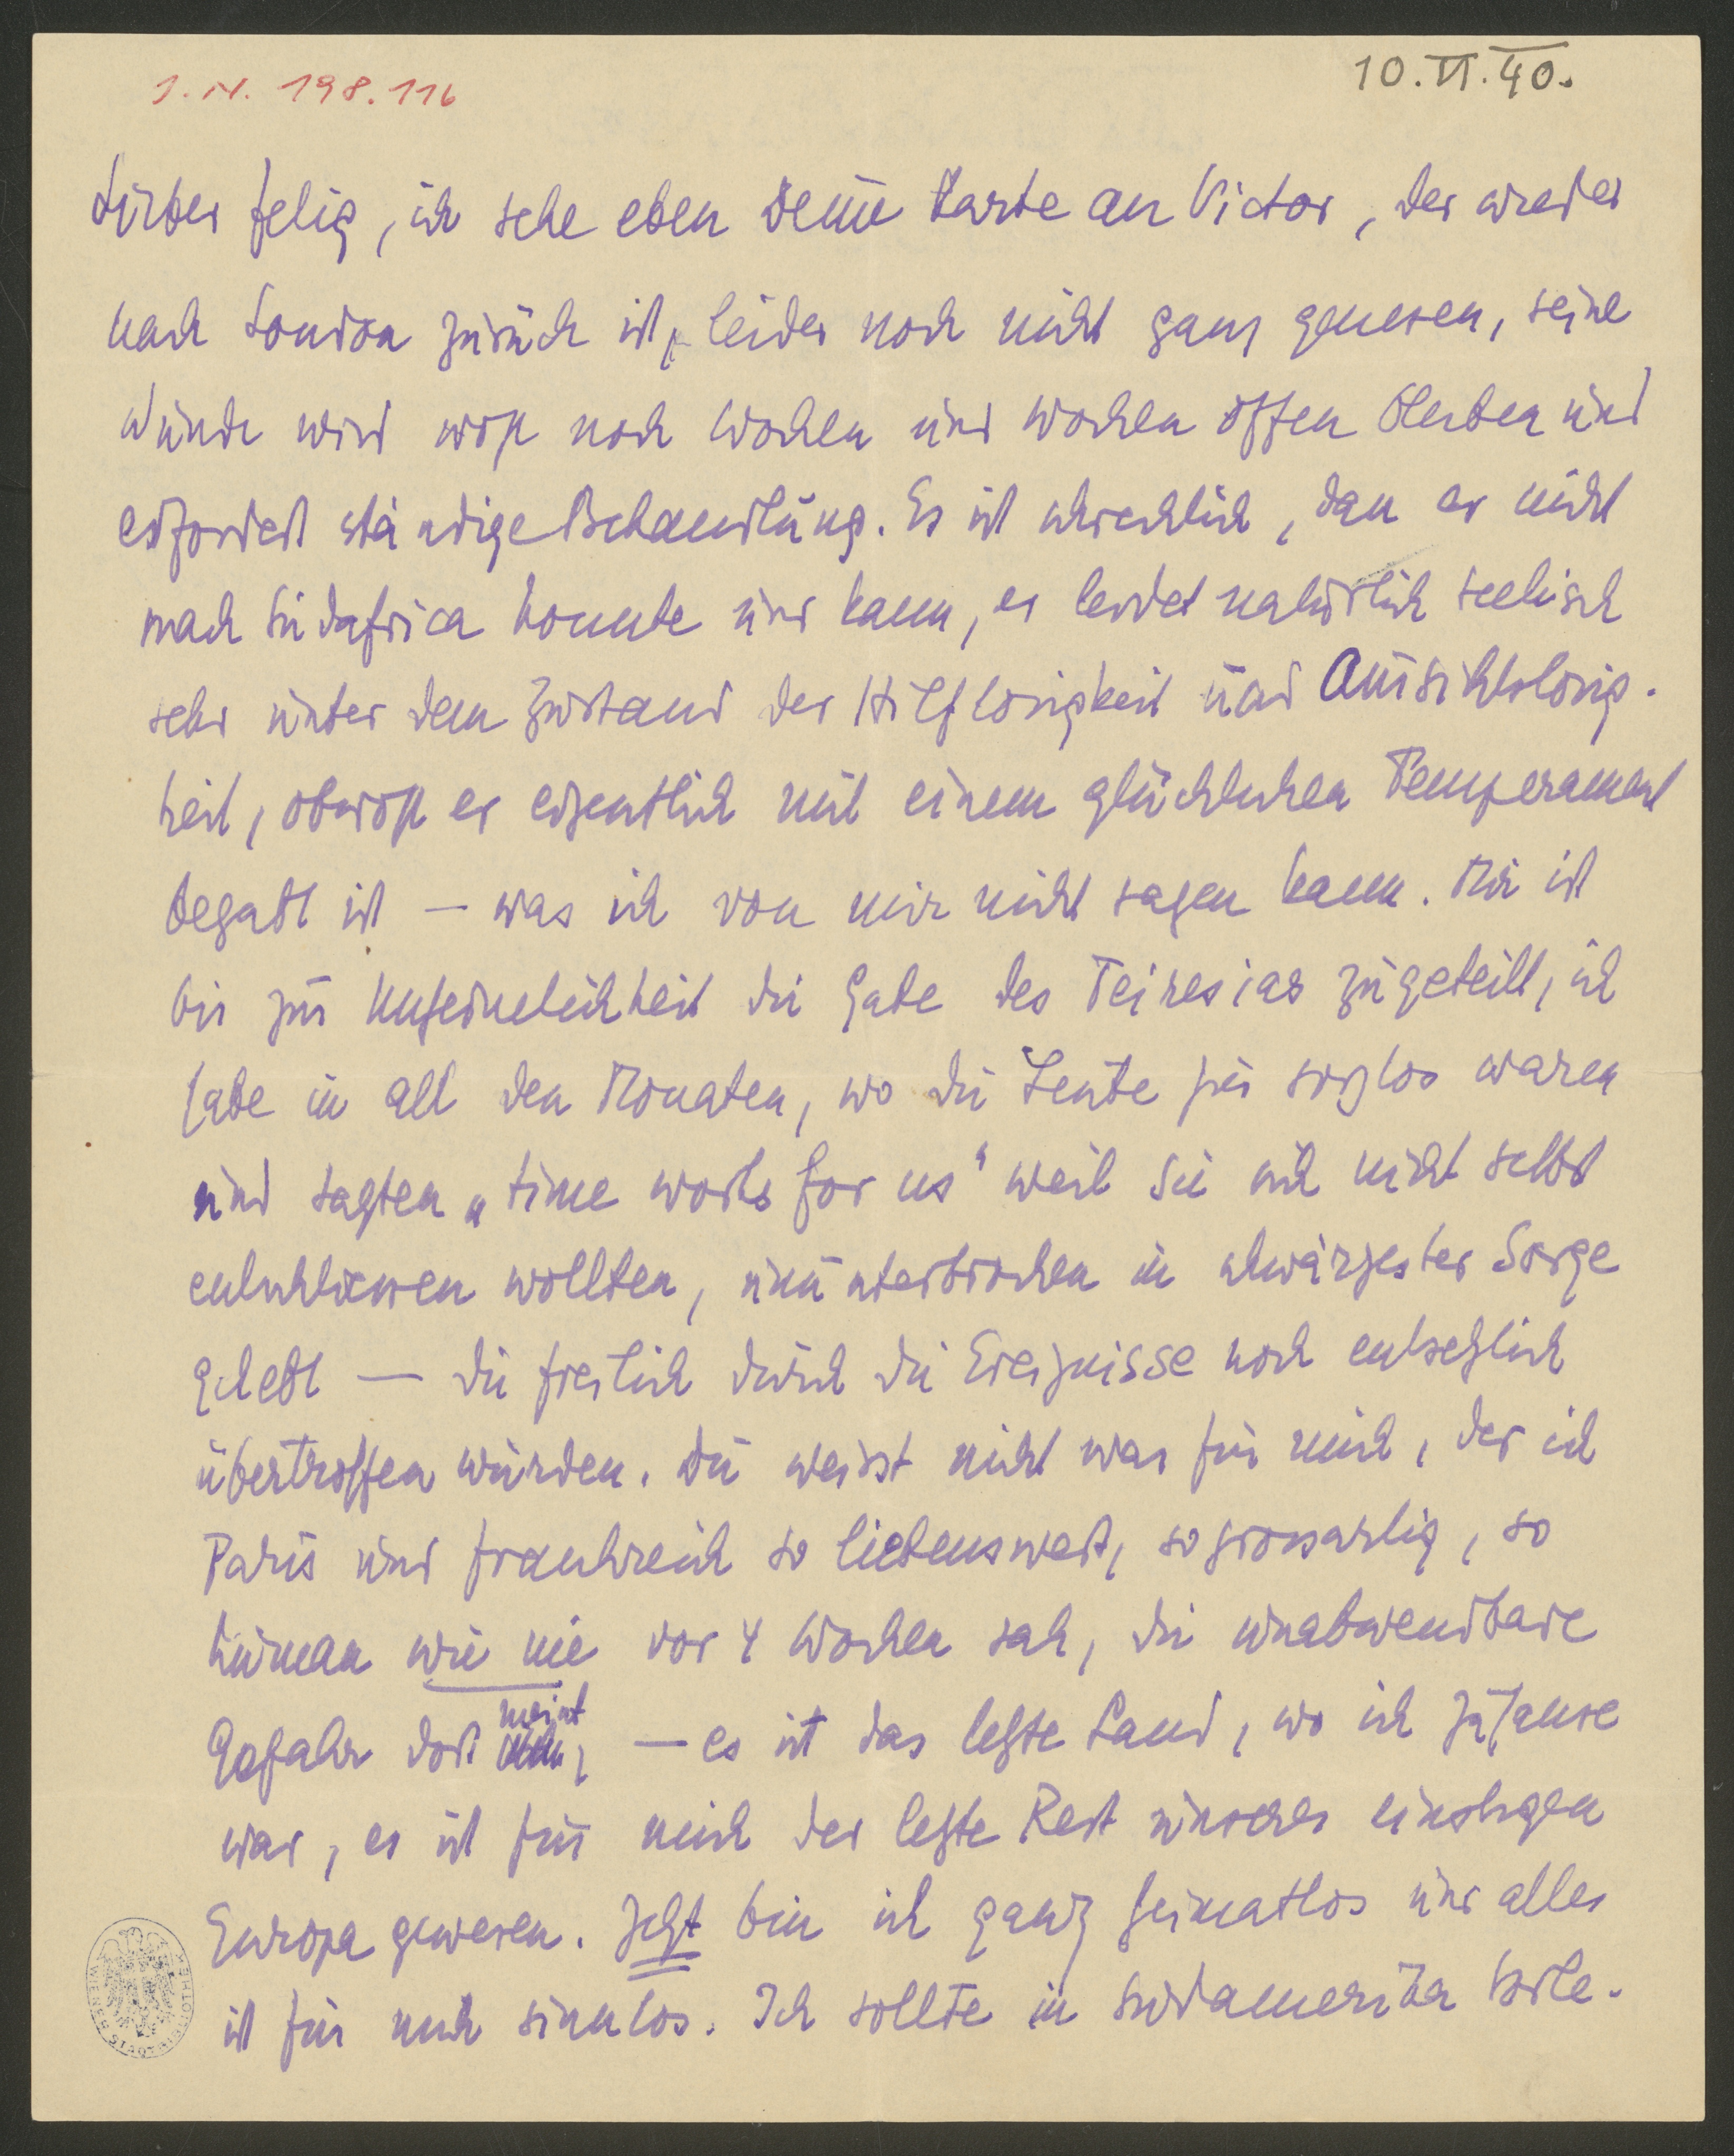 I.N. 198.116
10.VI.40.
Lieber Felix, ich sehe eben Deine Karte an Victor, der wieder
nach London zurück ist, leider noch nicht ganz genesen, seine
Wunde wird wohl noch Wochen und Wochen offen bleiben und
erfordert ständige Behandlung. Es ist schrecklich, dass er nicht
nach Südafrica konnte und kann, er leidet natürlich seelisch
sehr unter dem Zustand der Hilflosigkeit und Aussichtslosig-
keit, obwohl er eigentlich mit einem glücklichen Temperament
begabt ist — was ich von mir nicht sagen kann. Mir ist
bis zur Unheimlichkeit die Gabe des Teiresias zugeteilt, ich
habe in all den Monaten, wo die Leute hier sorglos waren
und sagten „time works for us" weil sie sich nicht selbst
entschliessen wollten, ununterbrochen in schwärzester Sorge
gelebt — die freilich durch die Ereignisse noch entsetzlich
übertroffen wurden. Du weisst nicht was für mich, der ich
Paris und Frankreich so liebenswert, so grossartig, so
human wie nie vor 4 Wochen sah, die unabwendbare
Gefahr dort meint — es ist das letzte Land, wo ich zuhause
war, es ist für mich der letzte Rest unseres einstigen
Europa gewesen. Jetzt bin ich ganz heimatlos und alles
ist für mich sinnlos. Ich sollte in Südamerika Vorle-